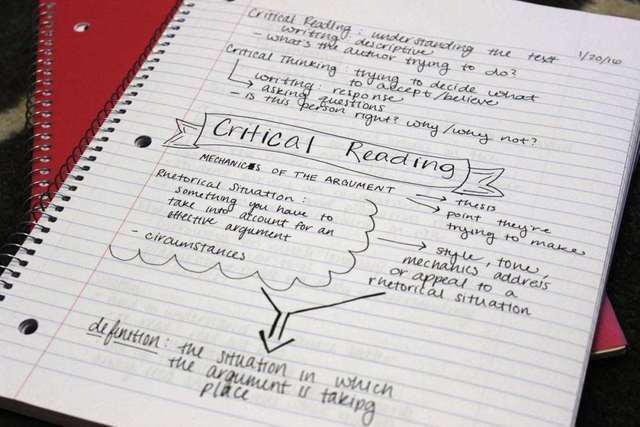 Critical Reading: understanding the text
writing: descriptive
- what's the author trying to do?
1/20/16
Critical Thinking: trying to decide what
to accept/believe
writing: response
asking questions
- is this person right? why/why not?
Critical Reading
MECHANICS OF THE ARGUMENT → thesis
→ point they're
trying to make
Rhetorical Situation:
something you have to
take into account for an
effective argument
- circumstances
→ style, tone,
mechanics address
or appeal to a
rhetorical situation
definition: the situation in which
the argument is taking
place